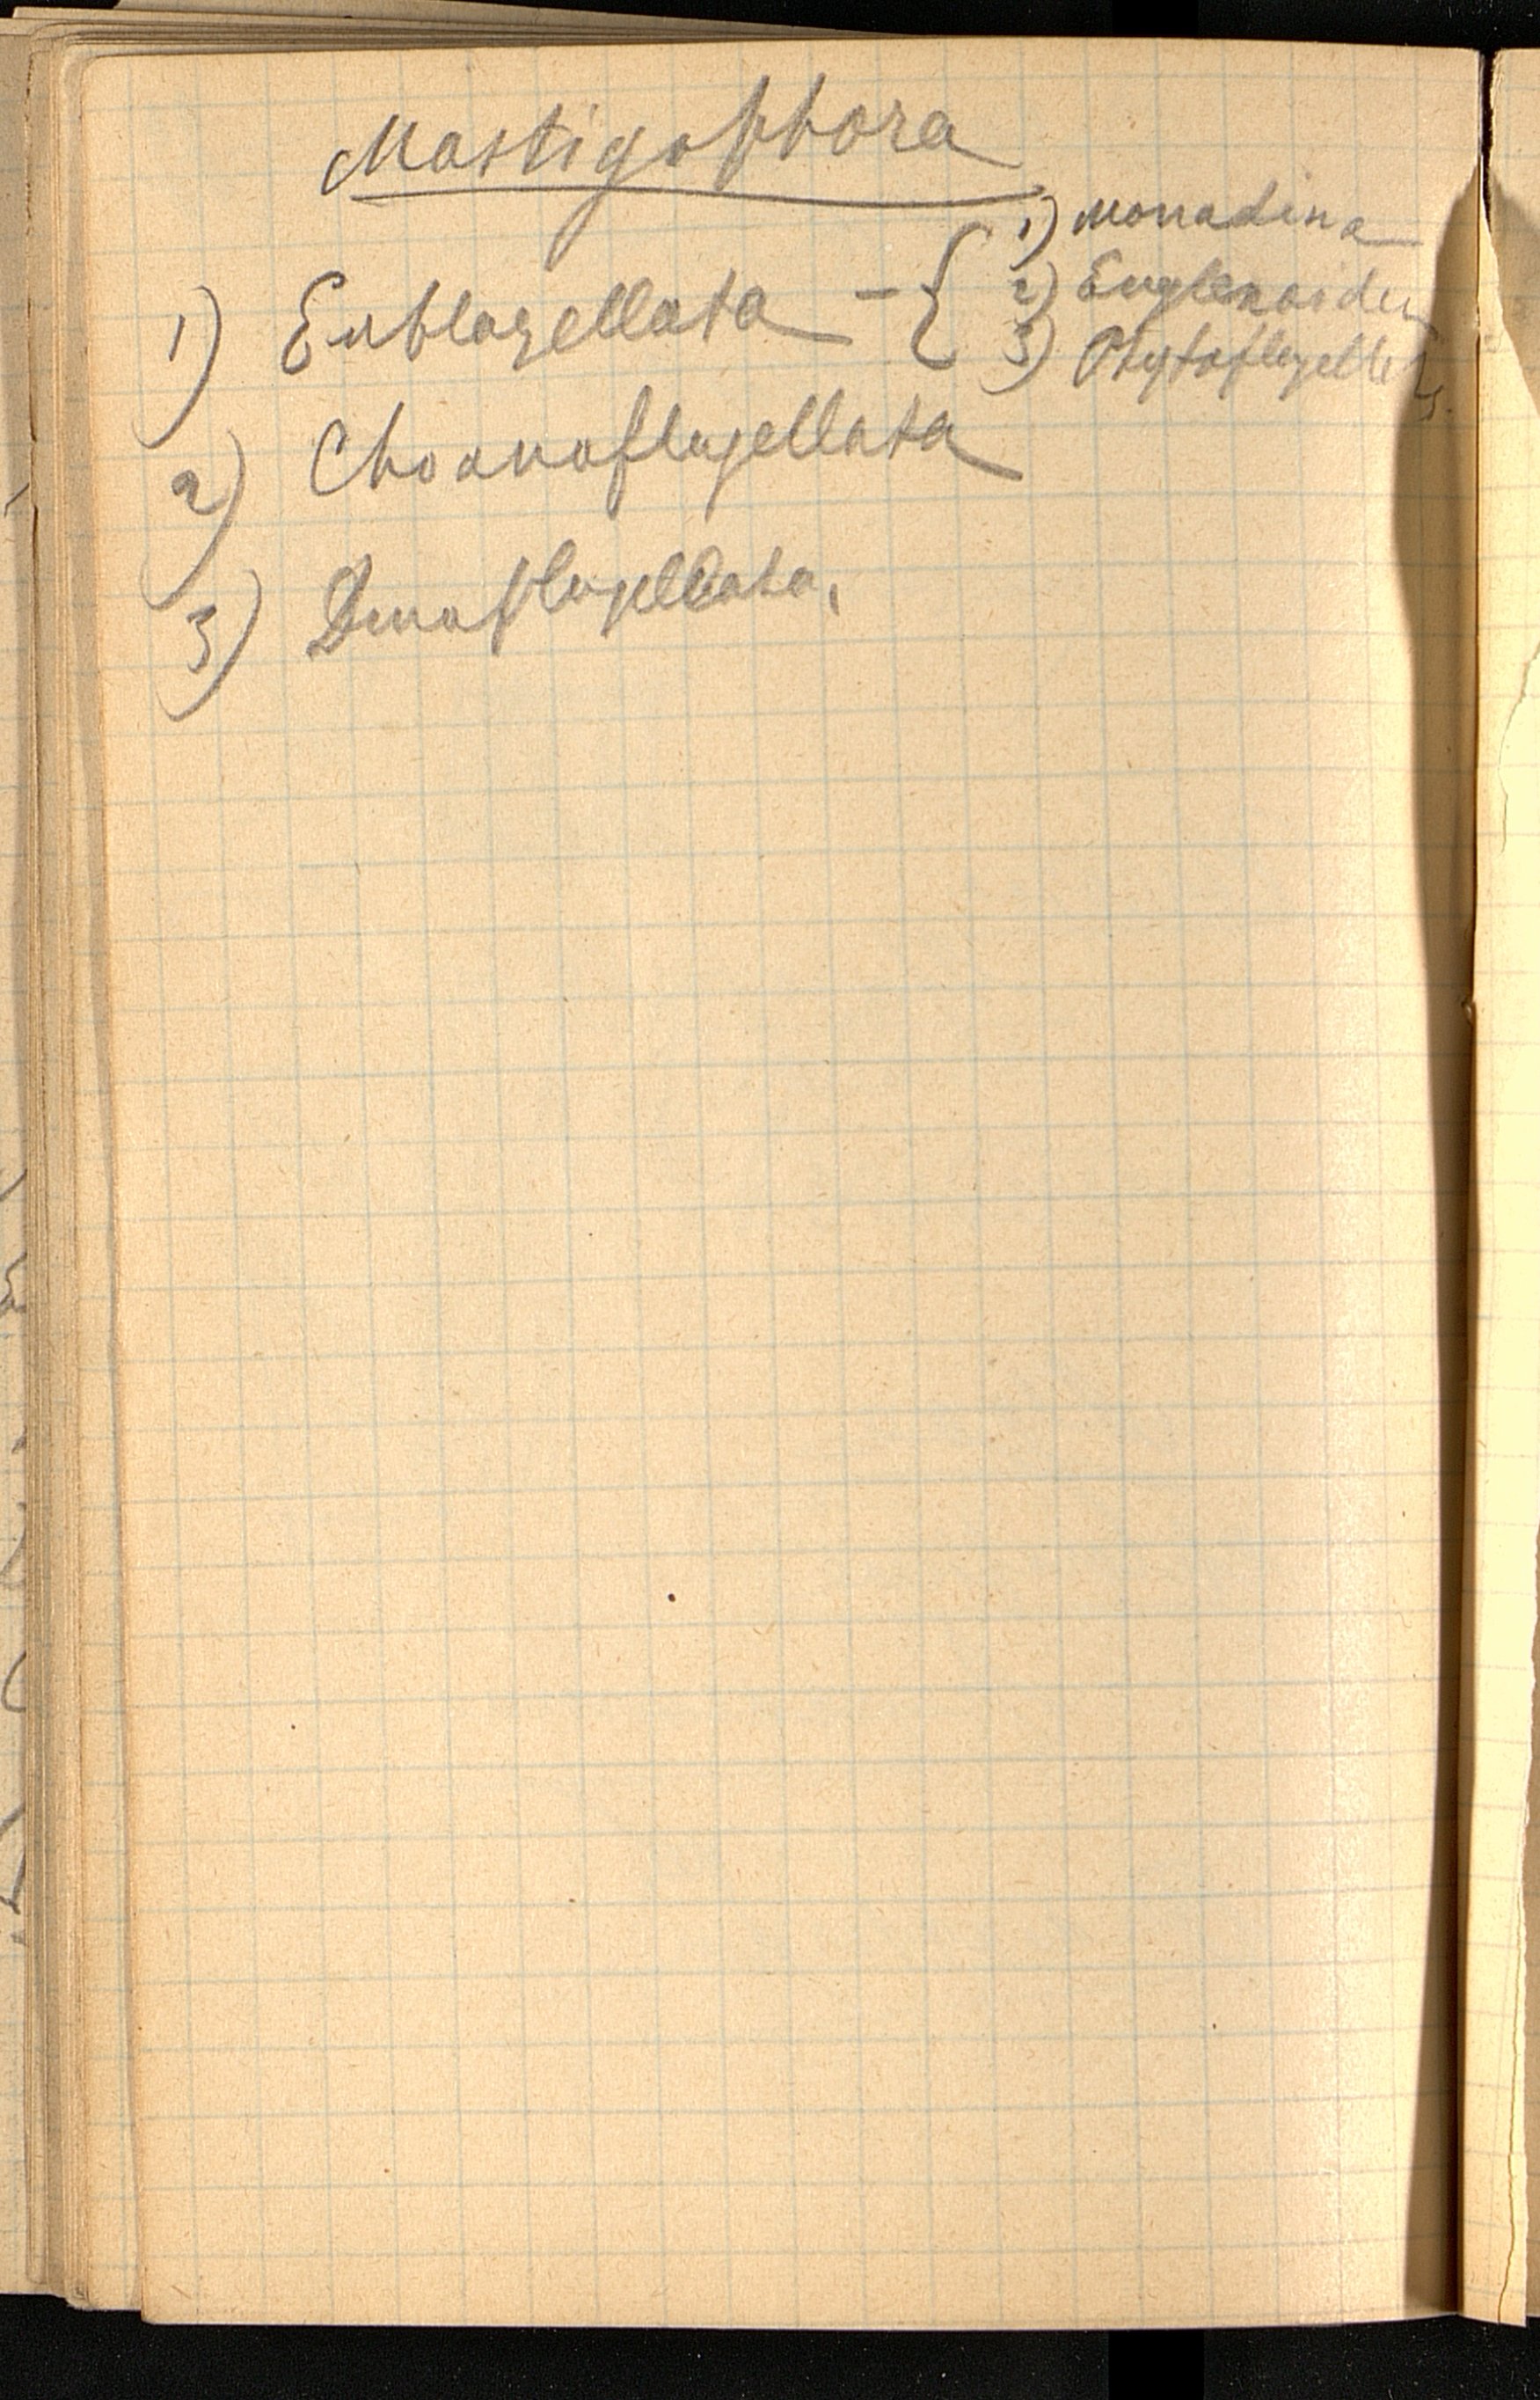 Mastigophora
1) Euflagellata - {
1) Monadina
2) Euglenoidea
3) Phytoflagellata
2) Choanoflagellata
3) Dinoflagellata.